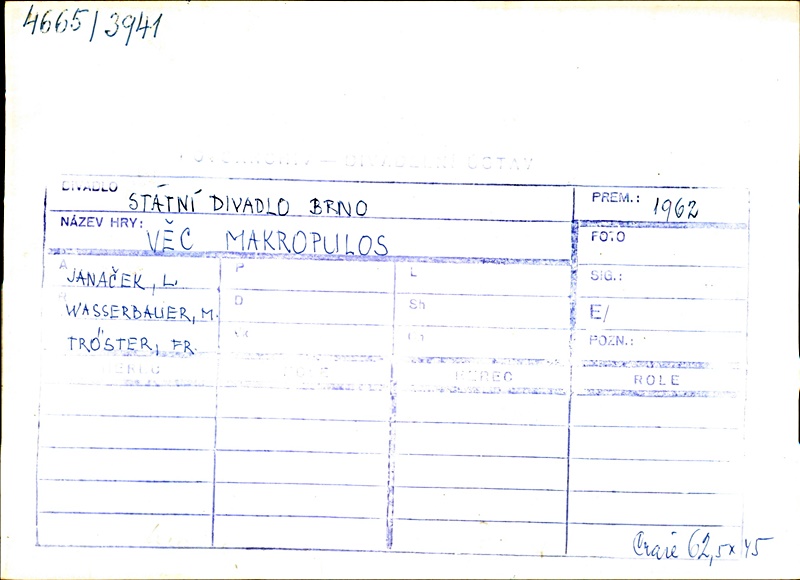 4665/3941
DIVADLO STÁTNÍ DIVADLO BRNO PREM.: 1962
NÁZEV HRY: VĚC MAKROPULOS FOTO
A JANAČEK, L. P L SIG.:
WASSERBAUER, M. D Sh E/
TRÖSTER, FR. POZN.:
HEREC ROLE HEREC ROLE
62,5 x 45